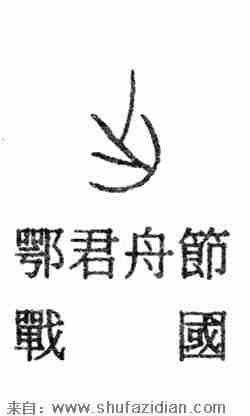 鄂君舟節
戰國
来自：www.shufazidian.com